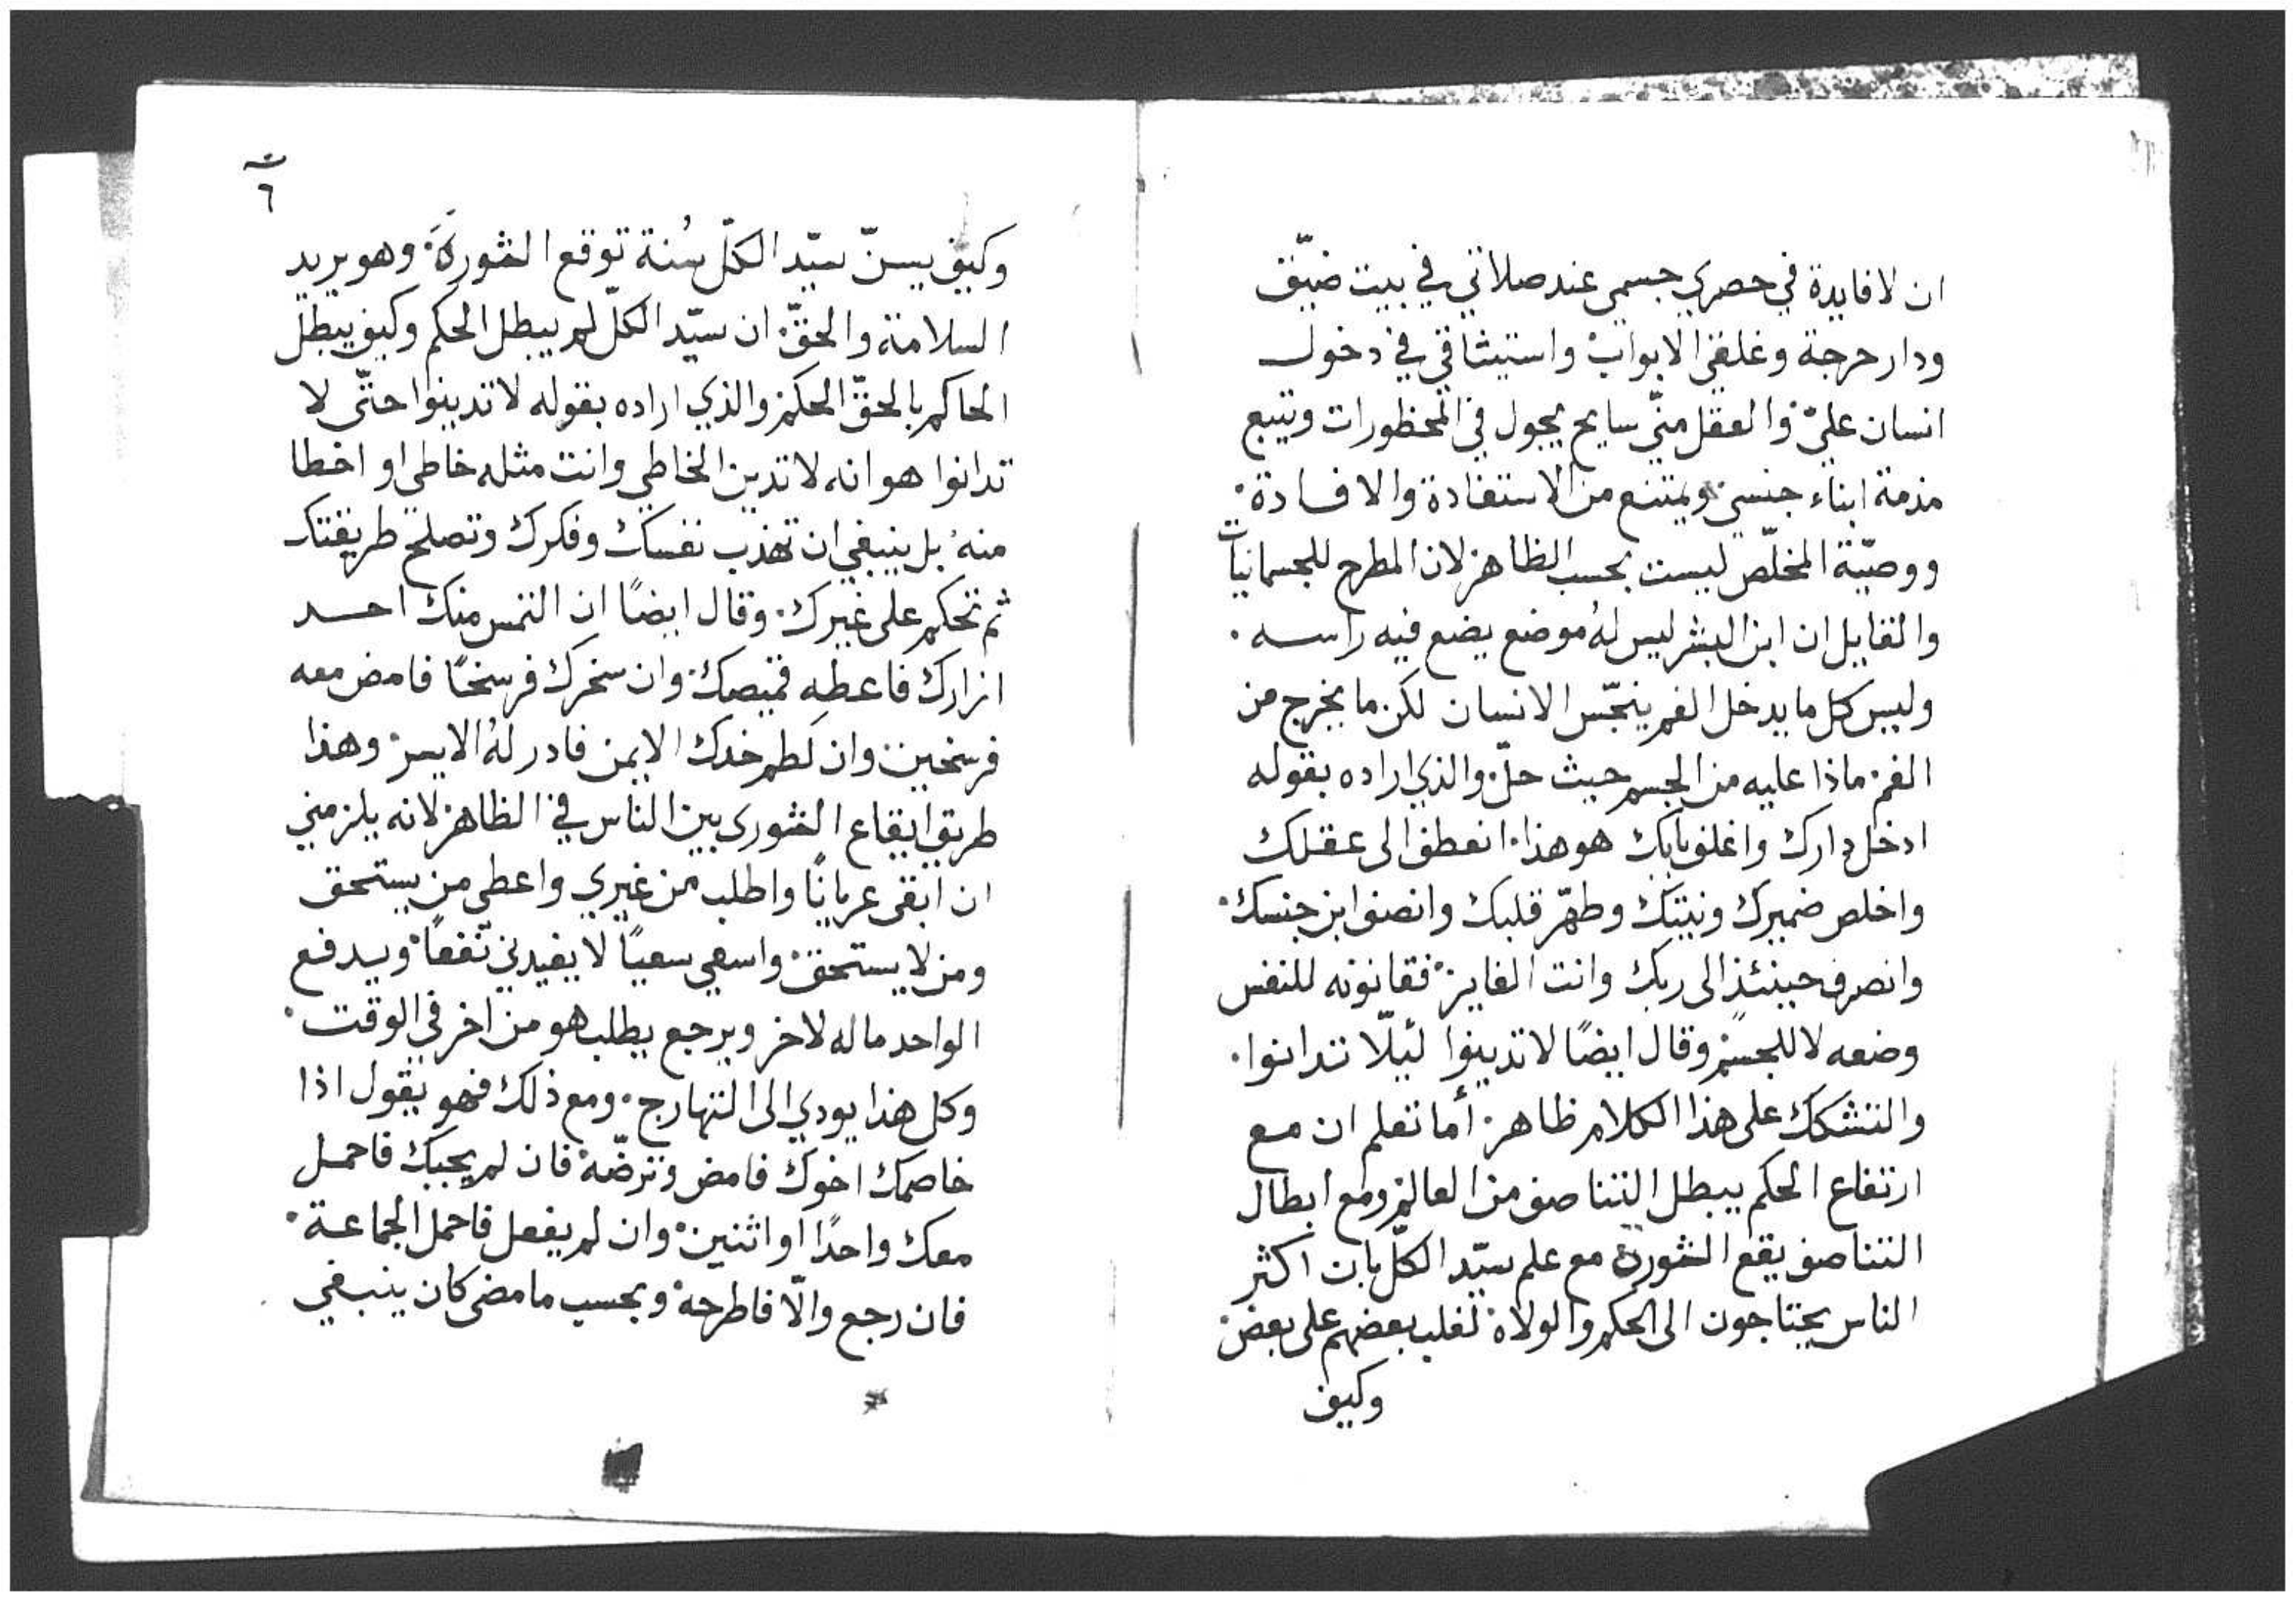 ان لا فايدة في حصري جسمي عند صلاتي في بيت ضيّق
ودار حرجة وغلقي الابواب واستيثاقي في دخول
انسان عليّ والعقل منّي سايح يجول في المحظورات ويتبع
مذمة ابناء جنسي ويمتنع من الاستفادة والافادة
ووصيّة المخلّص ليست بحسب الظاهر لان المطرح للجسمانيات
والقايل ان ابن البشر ليس لهُ موضع يضع فيه راسه
وليس كل ما يدخل الفم ينجّس الانسان لكن ما يخرج من
الفم ماذا عليه من الجسم حيث حلّ والذي اراده بقوله
ادخل دارك واغلق بابك هو هذا انعطف الى عقلك
واخلص ضميرك ونيتك وطهّر قلبك وانصف ابن جنسك
وانصرف حينئذٍ الى ربك وانت الفايز فقانونه للنفس
وضعه لا للجسم وقال ايضًا لا تدينوا ليلّا تدانوا
والتشكك على هذا الكلام ظاهر أما تعلم ان مع
ارتفاع الحكم يبطل التناصف من العالم ومع ابطال
التناصف يقع الشورى مع علم سيّد الكلّ بان اكثر
الناس يحتاجون الى الحكم والولاة لغلب بعضهم على بعض
وكيف
٦
وكيف يسنّ سيّد الكلّ سُنة توقع الشورى وهو يريد
السلامة والحقّ ان سيّد الكلّ لم يبطل الحكم وكيف يبطل
الحاكم بالحقّ الحكم والذي اراده بقوله لا تدينوا حتّى لا
تدانوا هو انه لا تدين الخاطي وانت مثله خاطي او اخطا
منهُ بل ينبغي ان تهذب نفسك وفكرك وتصلح طريقتك
ثم تحكم على غيرك وقال ايضًا ان التمس منك احد
ازارك فاعطهِ قميصك وان سخرك فرسخًا فامض معه
فرسخين وان لطم خدك الايمن فادر لهُ الايسر وهذا
طريق ايقاع الشورى بين الناس في الظاهر لانه يلزمني
ان ابقى عريانًا واطلب من غيري واعطي من يستحق
ومن لا يستحق واسعي سعيًا لا يفيدني نفعًا ويدفع
الواحد ماله لاخر ويرجع يطلب هو من اخر في الوقت
وكل هذا يودي الى التهارج ومع ذلك فهو يقول اذا
خاصمك اخوك فامض وترضّهُ فان لم يجبك فاحمل
معك واحدًا او اثنين وان لم يفعل فاحمل الجماعة
فان رجع والّا فاطرحهُ وبحسب ما مضى كان ينبغي